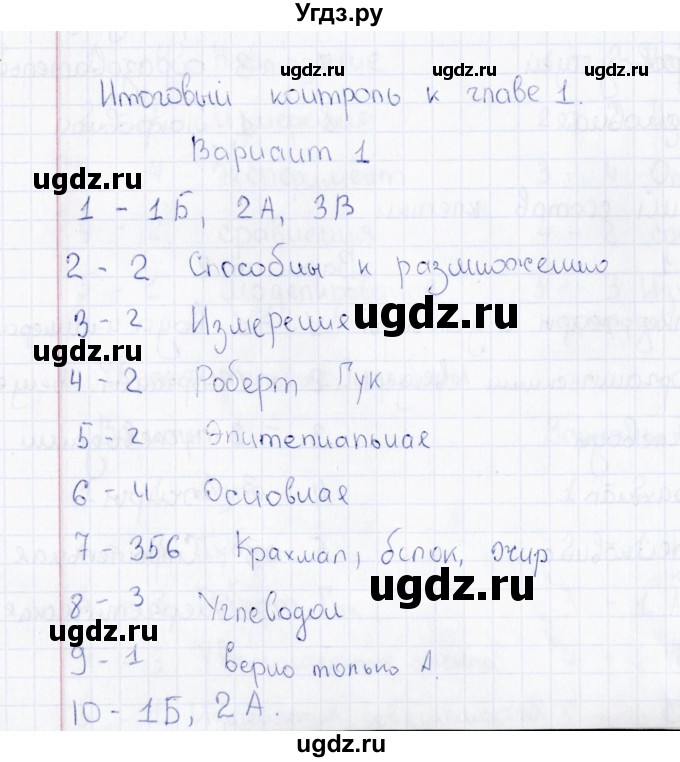 Угдз.ру
ugdz.ru ugdz.ru ugdz.ru
Итоговый контроль к главе 1.
Вариант 1
ugdz.ru
1 - 1Б, 2А, 3В
2 - 2 Способны к размножению
3 - 2 Измерения
ugdz.ru
ugdz.ru
4 - 2 Роберт Гук
5 - 2 Эпителиальная
6 - 4 Основная
7 - 356 Крахмал, белок, жир
ugdz.ru
8 - 3 Углеводы
ugdz.ru
9 - 1 верно только А.
10 - 1Б, 2А.
ugdz.ru